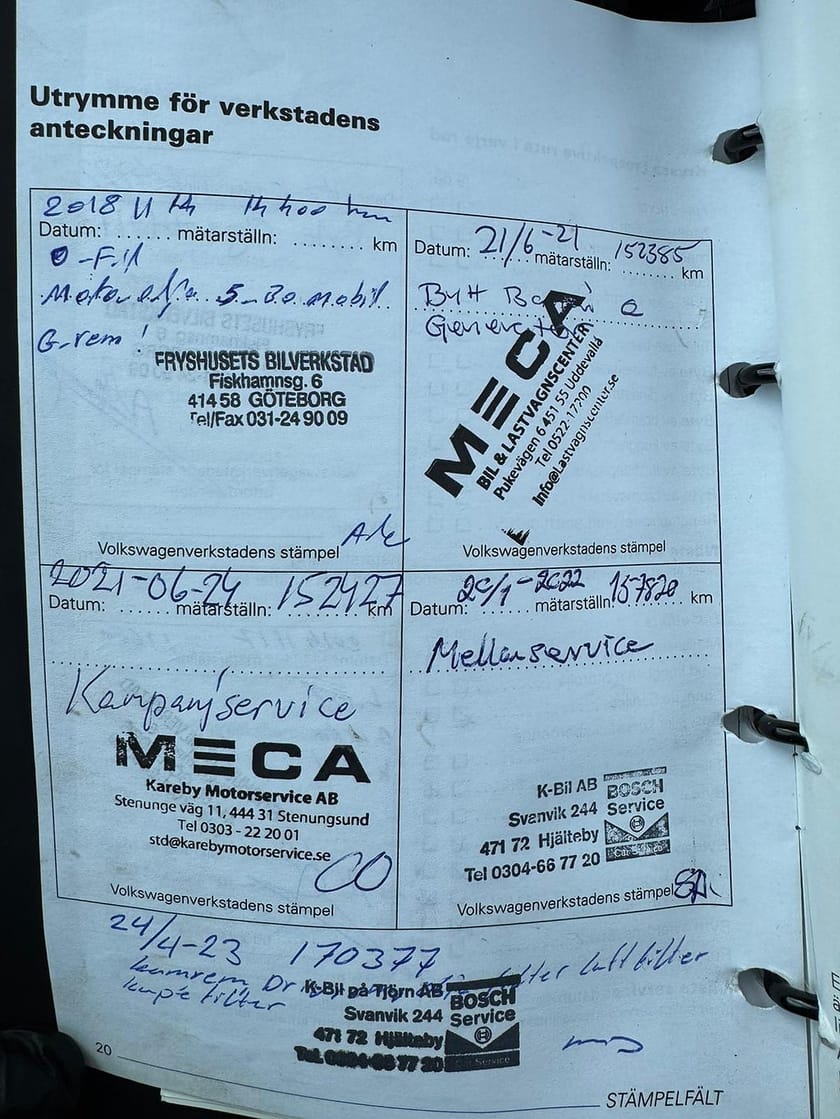 Utrymme för verkstadens
anteckningar
2018 11 14
Datum: ...... mätarställn: ........ km
O-Fil
Motorolja 5-30 mobil
G-rem !
FRYSHUSETS BILVERKSTAD
Fiskhamnsg. 6
414 58 GÖTEBORG
Tel/Fax 031-24 90 09
Volkswagenverkstadens stämpel
Datum: 21/6-21 mätarställn: 152385 km
Bytt
Generator
MECA
BIL & LASTVAGNSCENTER
Pukevägen 6 451 55 Uddevalla
Tel 0522-17200
Info@Lastvagnscenter.se
Volkswagenverkstadens stämpel
Datum: 2021-06-24 mätarställn: 152427 km
Kampanjservice
MECA
Kareby Motorservice AB
Stenunge väg 11, 444 31 Stenungsund
Tel 0303 - 22 20 01
std@karebymotorservice.se
CO
Volkswagenverkstadens stämpel
Datum: 20/1-2022 mätarställn: 157820 km
Mellanservice
K-Bil AB
Svanvik 244
471 72 Hjälteby
Tel 0304-66 77 20
BOSCH
Service
Car Service
Volkswagenverkstadens stämpel
24/4-23 170377
kamrem filter luftfilter
kupefilter
K-Bil på Tjörn AB
Svanvik 244
471 72 Hjälteby
Tel. 0304-66 77 20
BOSCH
Service
Car Service
20
STÄMPELFÄLT